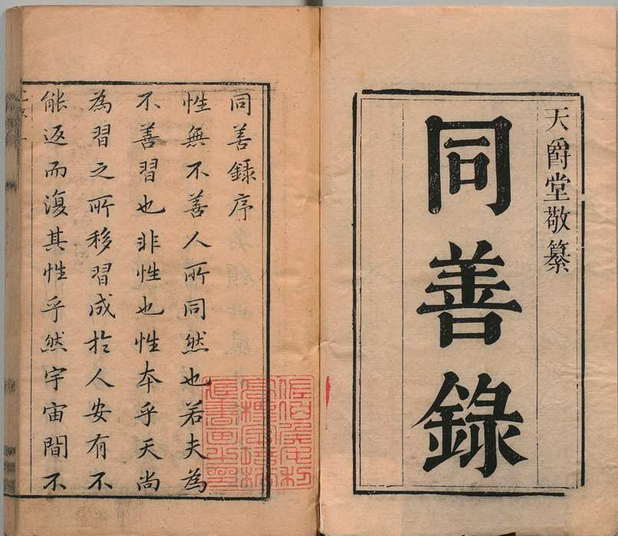 天爵堂敬纂
同善錄
同善錄序
性無不善人所同然也若夫為
不善習也非性也性本乎天尚
為習之所移習成於人安有不
能返而復其性乎然宇宙間不